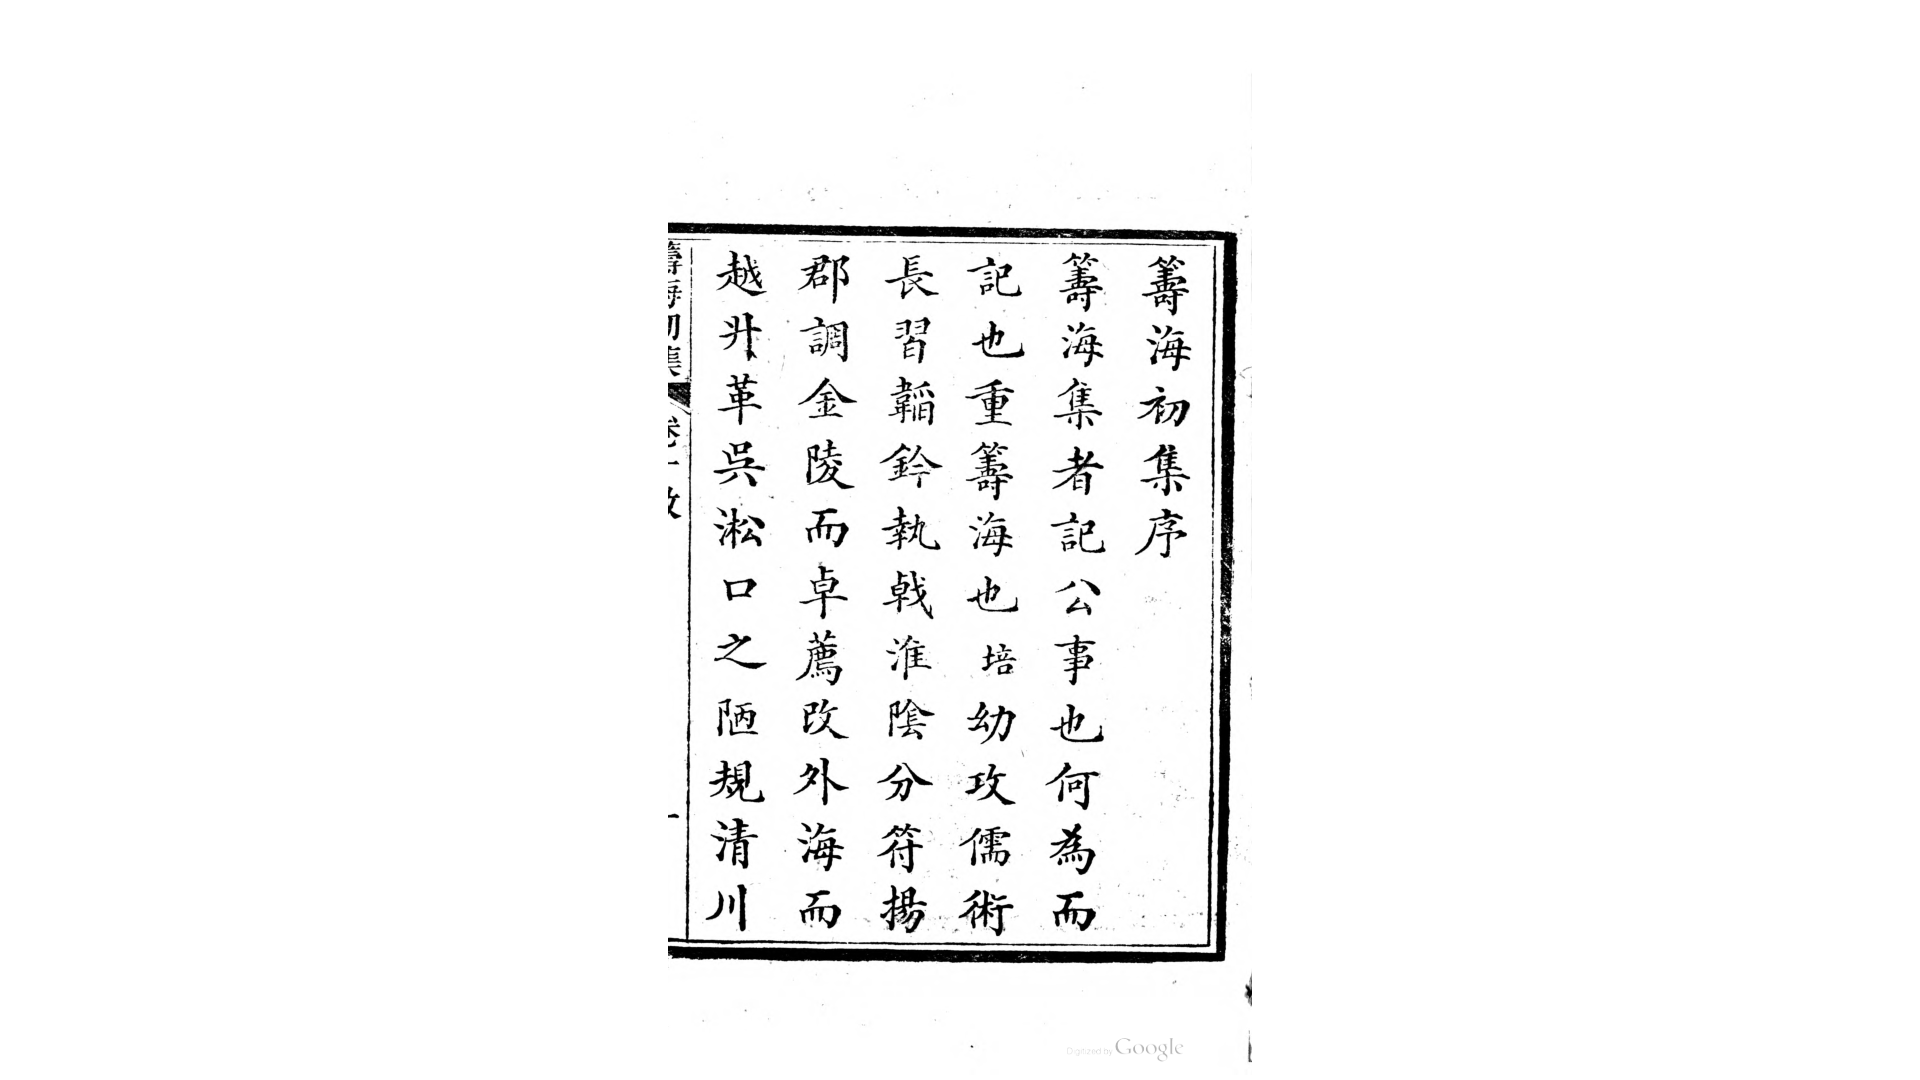 籌海初集序
籌海集者記公事也何為而
記也重籌海也培幼攻儒術
長習韜鈐執戟淮陰分符揚
郡調金陵而卓薦改外海而
越升革吳淞口之陋規清川
籌海初集
卷一敘
一
Digitized by Google